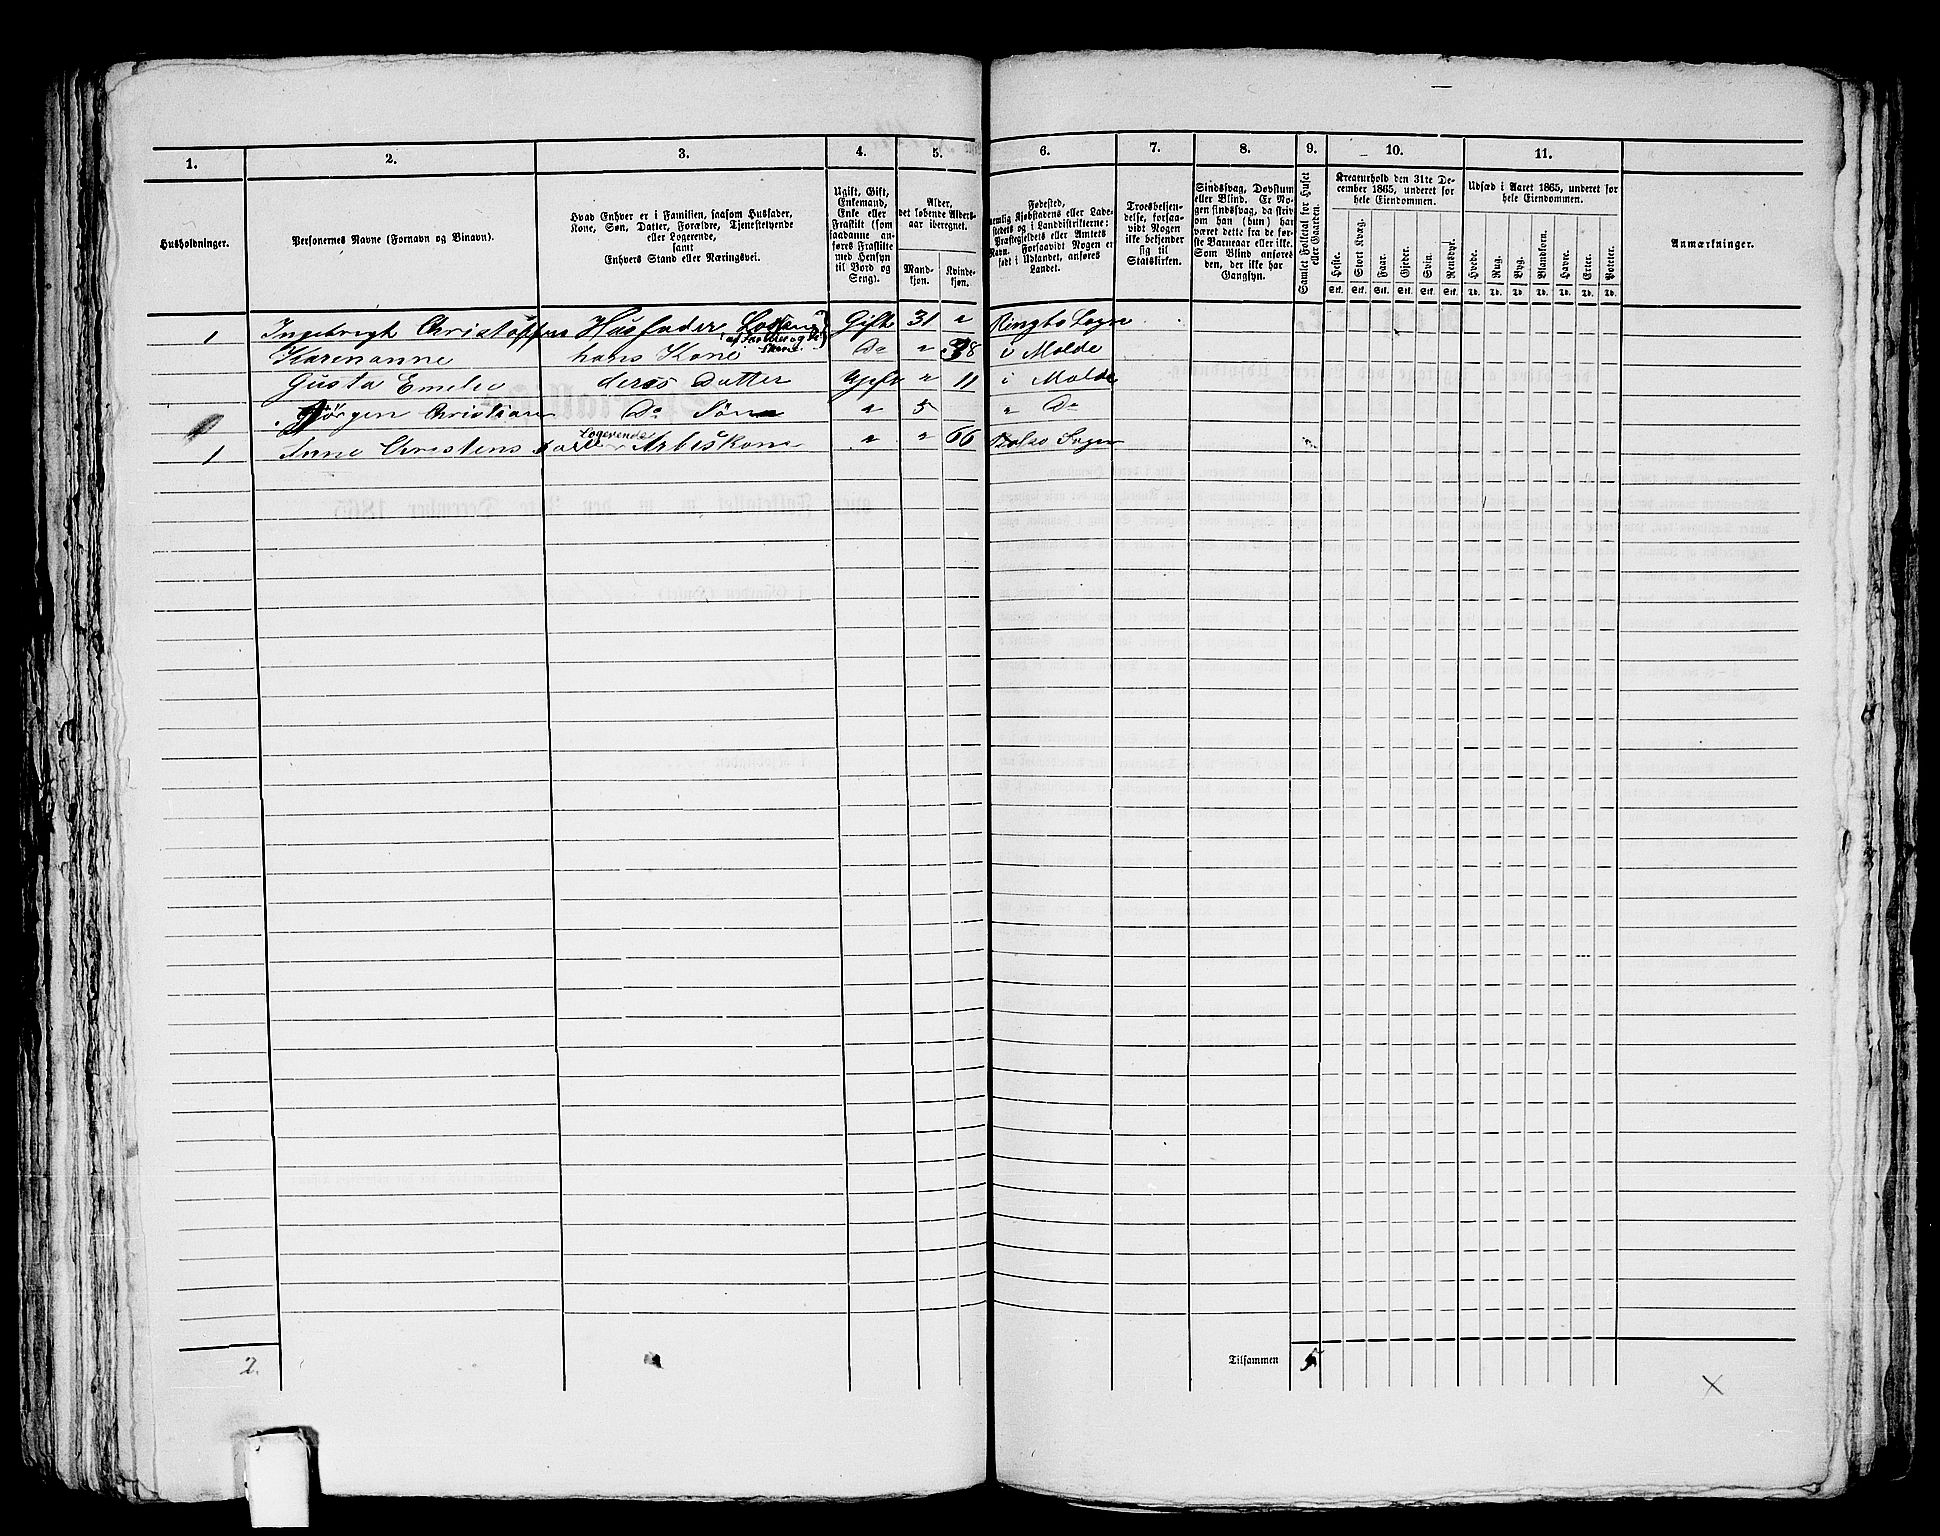 1. 2. 3. 4. 5. 6. 7. 8. 9. 10. 11.
Husholdninger.
Personernes Navne (Fornavn og Binavn).
Hvad Enhver er i Familien, saasom Husfader,
Kone, Søn, Datter, Forældre, Tjenestetyende
eller Logerende,
samt
Enhvers Stand eller Næringsvei.
Ugift, Gift,
Enkemand,
Enke eller
Fraskilt (som
saadanne an-
føres Fraskilte
med Hensyn
til Bord og
Seng).
Alder,
det løbende Alders-
aar iberegnet.
Mand-
kjøn.
Kvinde-
kjøn.
Fødested,
Kjøbstadens eller Lade-
stedets og i Landdistrikterne:
Præstegjeldets eller Amtets
Navn. Forsaavidt Nogen er
født i Udlandet, anføres
Landet.
Troesbekjen-
delse, forsaa-
vidt Nogen
ikke bekjender
sig til
Statskirken.
Sindssvag, Døvstum
eller Blind. Er No-
gen sindssvag, da skriv
om han (hun) har
været dette fra de før-
ste Barneaar eller ikke.
Som Blind anføres
den, der ikke har
Gangsyn.
Samlet Folketal for Huset
eller Gaarden.
Kreaturhold den 31te De-
cember 1865, underet for
hele Eiendommen.
Heste. Stort Kvæg. Faar. Gjeder. Svin. Rensdyr.
Stk. Stk. Stk. Stk. Stk. Stk.
Udsæd i Aaret 1865, underet for
hele Eiendommen.
Hvede. Rug. Byg. Blandkorn. Havre. Erter. Poteter.
Td. Td. Td. Td. Td. Td. Td.
Anmærkninger.
1 Ingebregt Christoffers Husfader Gift 31 " Sogn
Karenanne hans Kone Do " 38 i Molde
Gusta Emelie deres Datter Ugift " 11 i Molde
Jørgen Christian Do Søn " 5 " Do
Logerende
1 Anne Christens " " 66 Bolsø Sogn
2.
Tilsammen 5
X